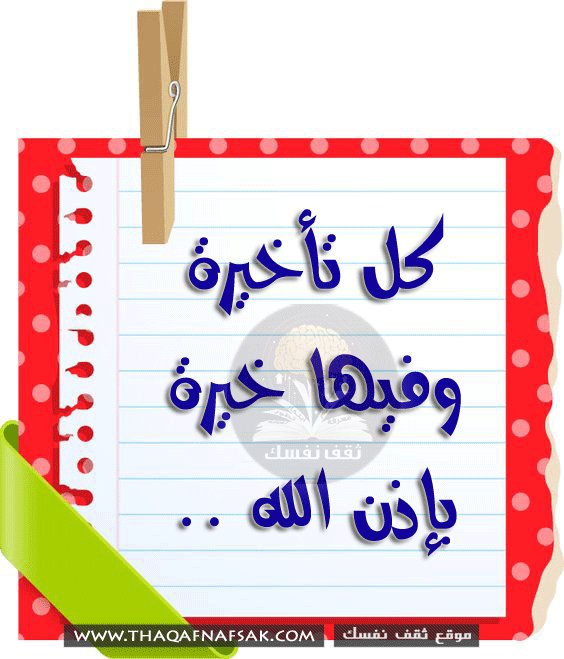 كل تأخيرة
وفيها خيرة
ثقف نفسك
بإذن الله ..
WWW.THAQAFNAFSAK.COM موقع ثقف نفسك